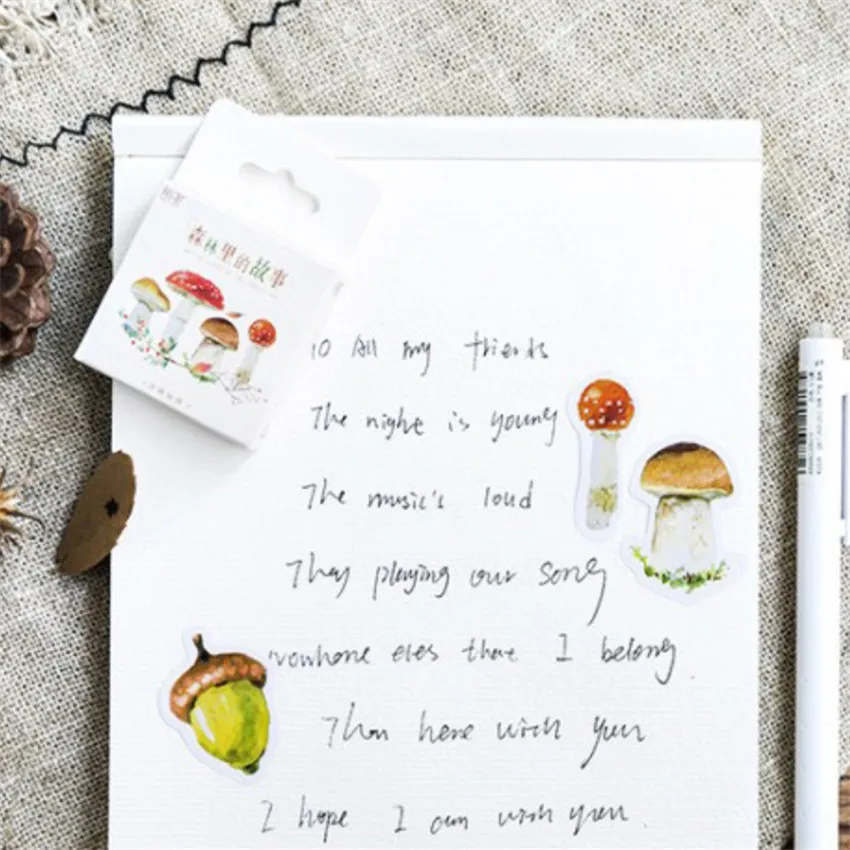 森林里的故事
To All my friends
The night is young
The music's loud
They playing our song
nowhere eles that I belong
Than here with you
I hope I am with you.